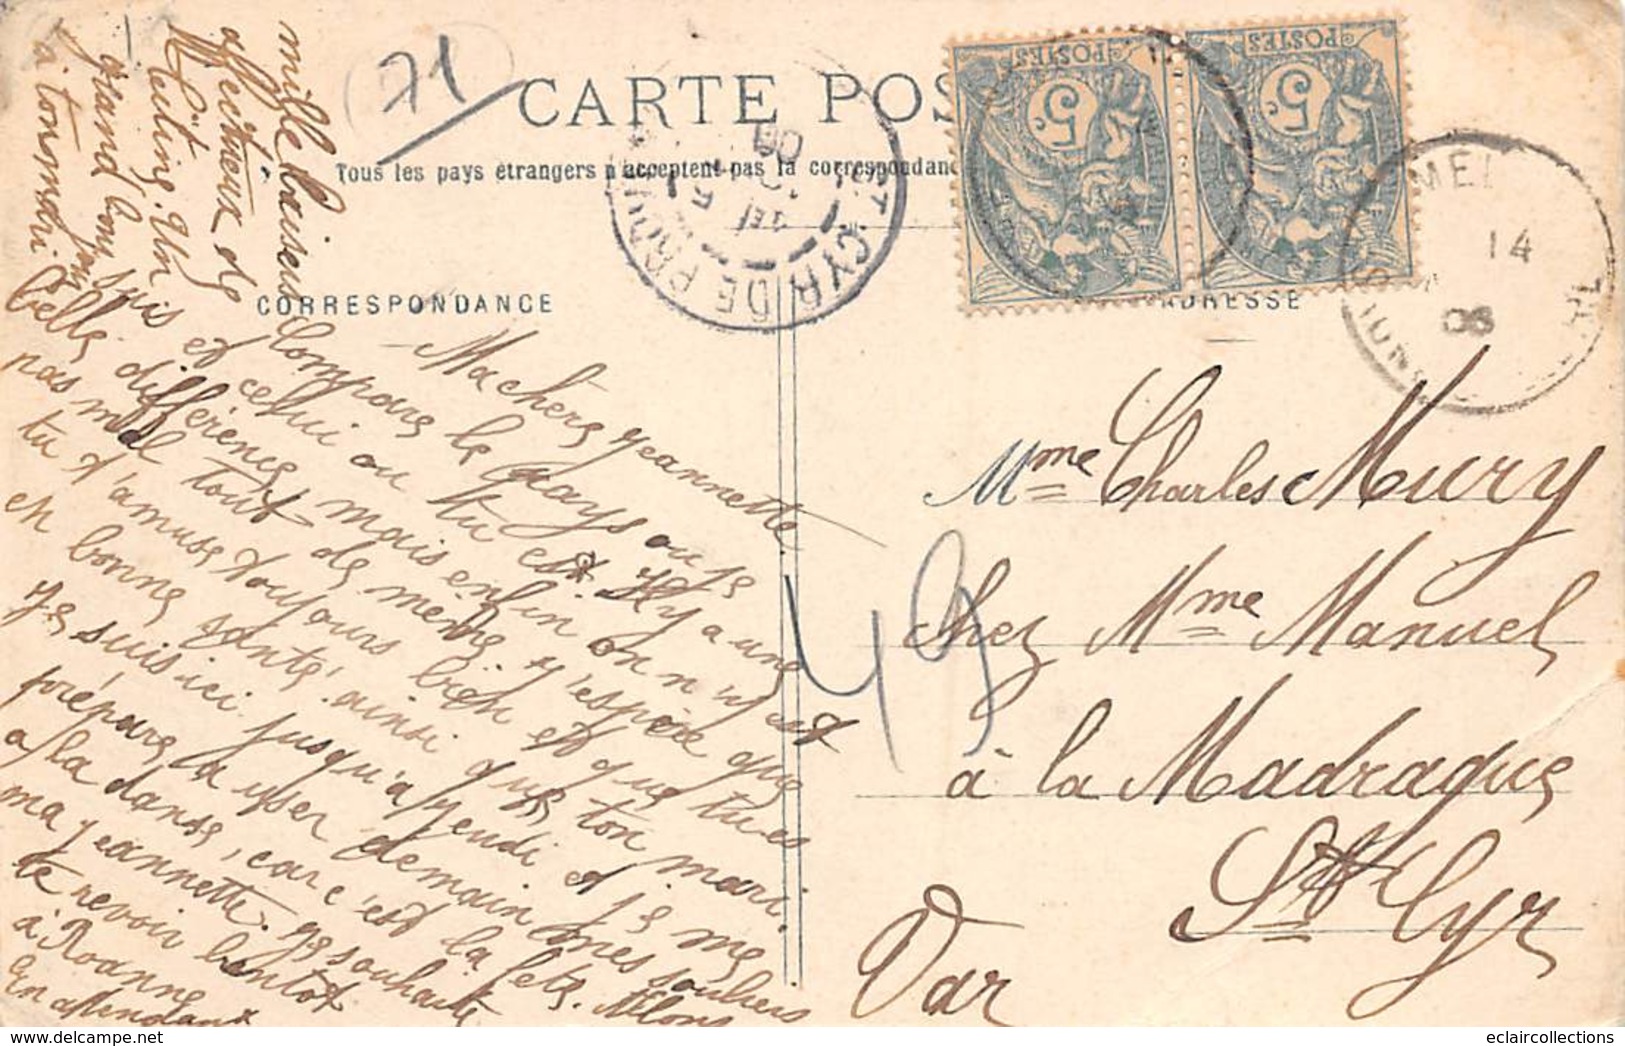 71
CARTE POS
Tous les pays étrangers n'acceptent pas la correspondanc
CORRESPONDANCE
ADRESSE
POSTES
5c
POSTES
5c
ST CYR DE PROV
MEL
14
06
Ma chère Jeannette
Compare le pays ou je
suis et celui ou tu est. Il y a une
belle différence mais enfin on n'y est
pas mal tout de même j'espère que
tu t'amuse toujours bien et que tu es
en bonne santé ainsi que ton mari.
Je suis ici jusqu'a jeudi et je me
prépare a user demain mes souliers
a la danse, car c'est la fete. Alons
ma Jeannette je souhaite
te revoir bientot
a Roanne
En attendant
mille baisers
affectueux de
Keuling. Un
grand bonjour
à ton mari
Mme Charles Mury
chez Mme Manuel
à la Madrague
St Cyr
Var
49
eclaircollections